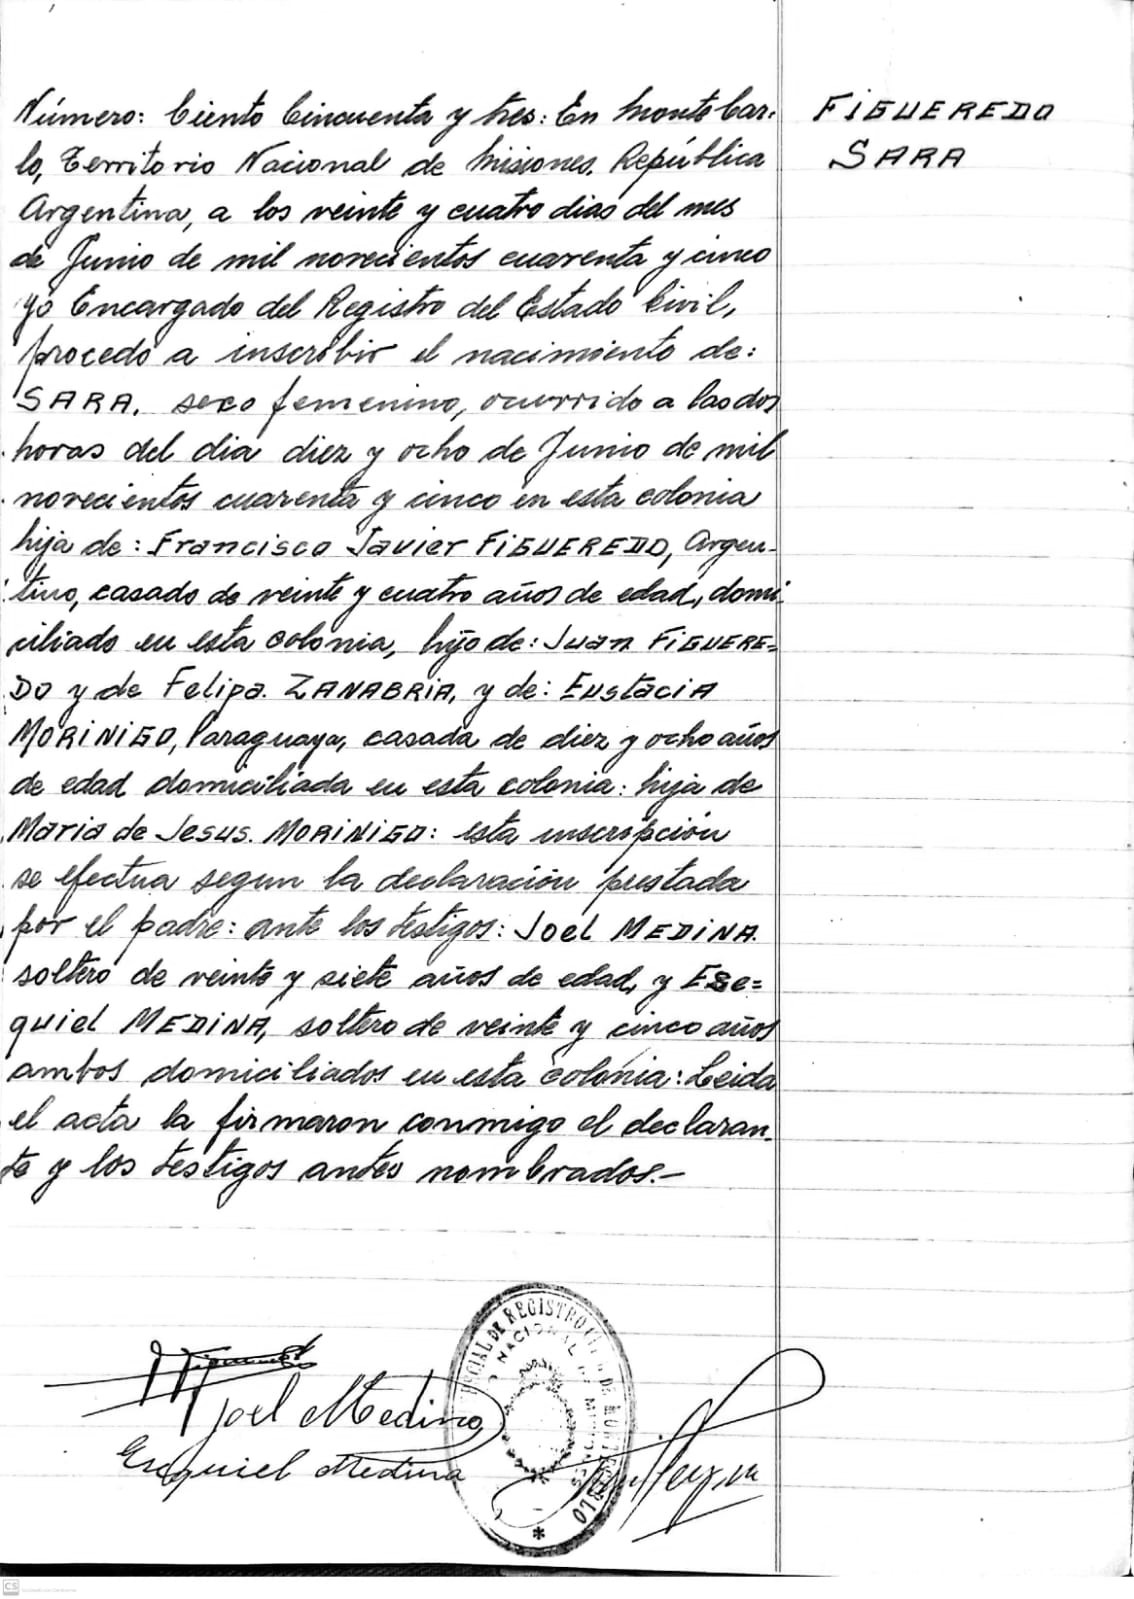 FIGUEREDO
SARA
Número: Ciento Cincuenta y tres: En Monte Car-
lo, Territorio Nacional de Misiones. República
Argentina, a los veinte y cuatro dias del mes
de Junio de mil novecientos cuarenta y cinco
yo Encargado del Registro del Estado Civil,
procedo a inscribir el nacimiento de:
SARA. sexo femenino, ocurrido a las dos
horas del dia diez y ocho de Junio de mil
novecientos cuarenta y cinco en esta colonia
hija de: Francisco Javier FIGUEREDO, Argen-
tino, casado de veinte y cuatro años de edad, domi-
ciliado en esta colonia, hijo de: Juan FIGUERE=
DO y de Felipa. ZANABRIA, y de: Eustacia
MORINIGO, Paraguaya, casada de diez y ocho años
de edad domiciliada en esta colonia: hija de
Maria de Jesus. MORINIGO: esta inscripción
se efectua segun la declaración prestada
por el padre: ante los testigos: Joel MEDINA.
soltero de veinte y siete años de edad, y Ese=
quiel MEDINA, soltero de veinte y cinco años
ambos domiciliados en esta colonia: Leida
el acta la firmaron conmigo el declaran-
te y los testigos antes nombrados.-
Joel Medina
Esequiel Medina
DE REGISTRO
NACIONAL
CS